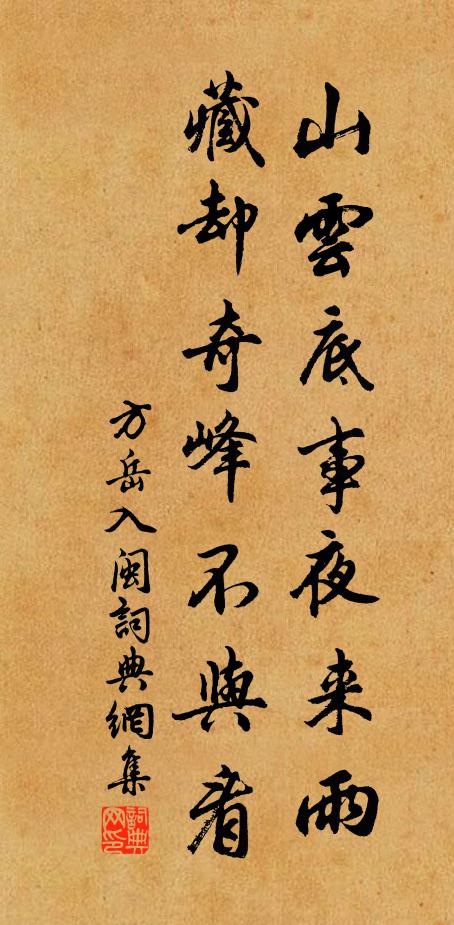 山雲底事夜来雨
藏却奇峰不與看
方岳入閩詞典網集
詞典网印